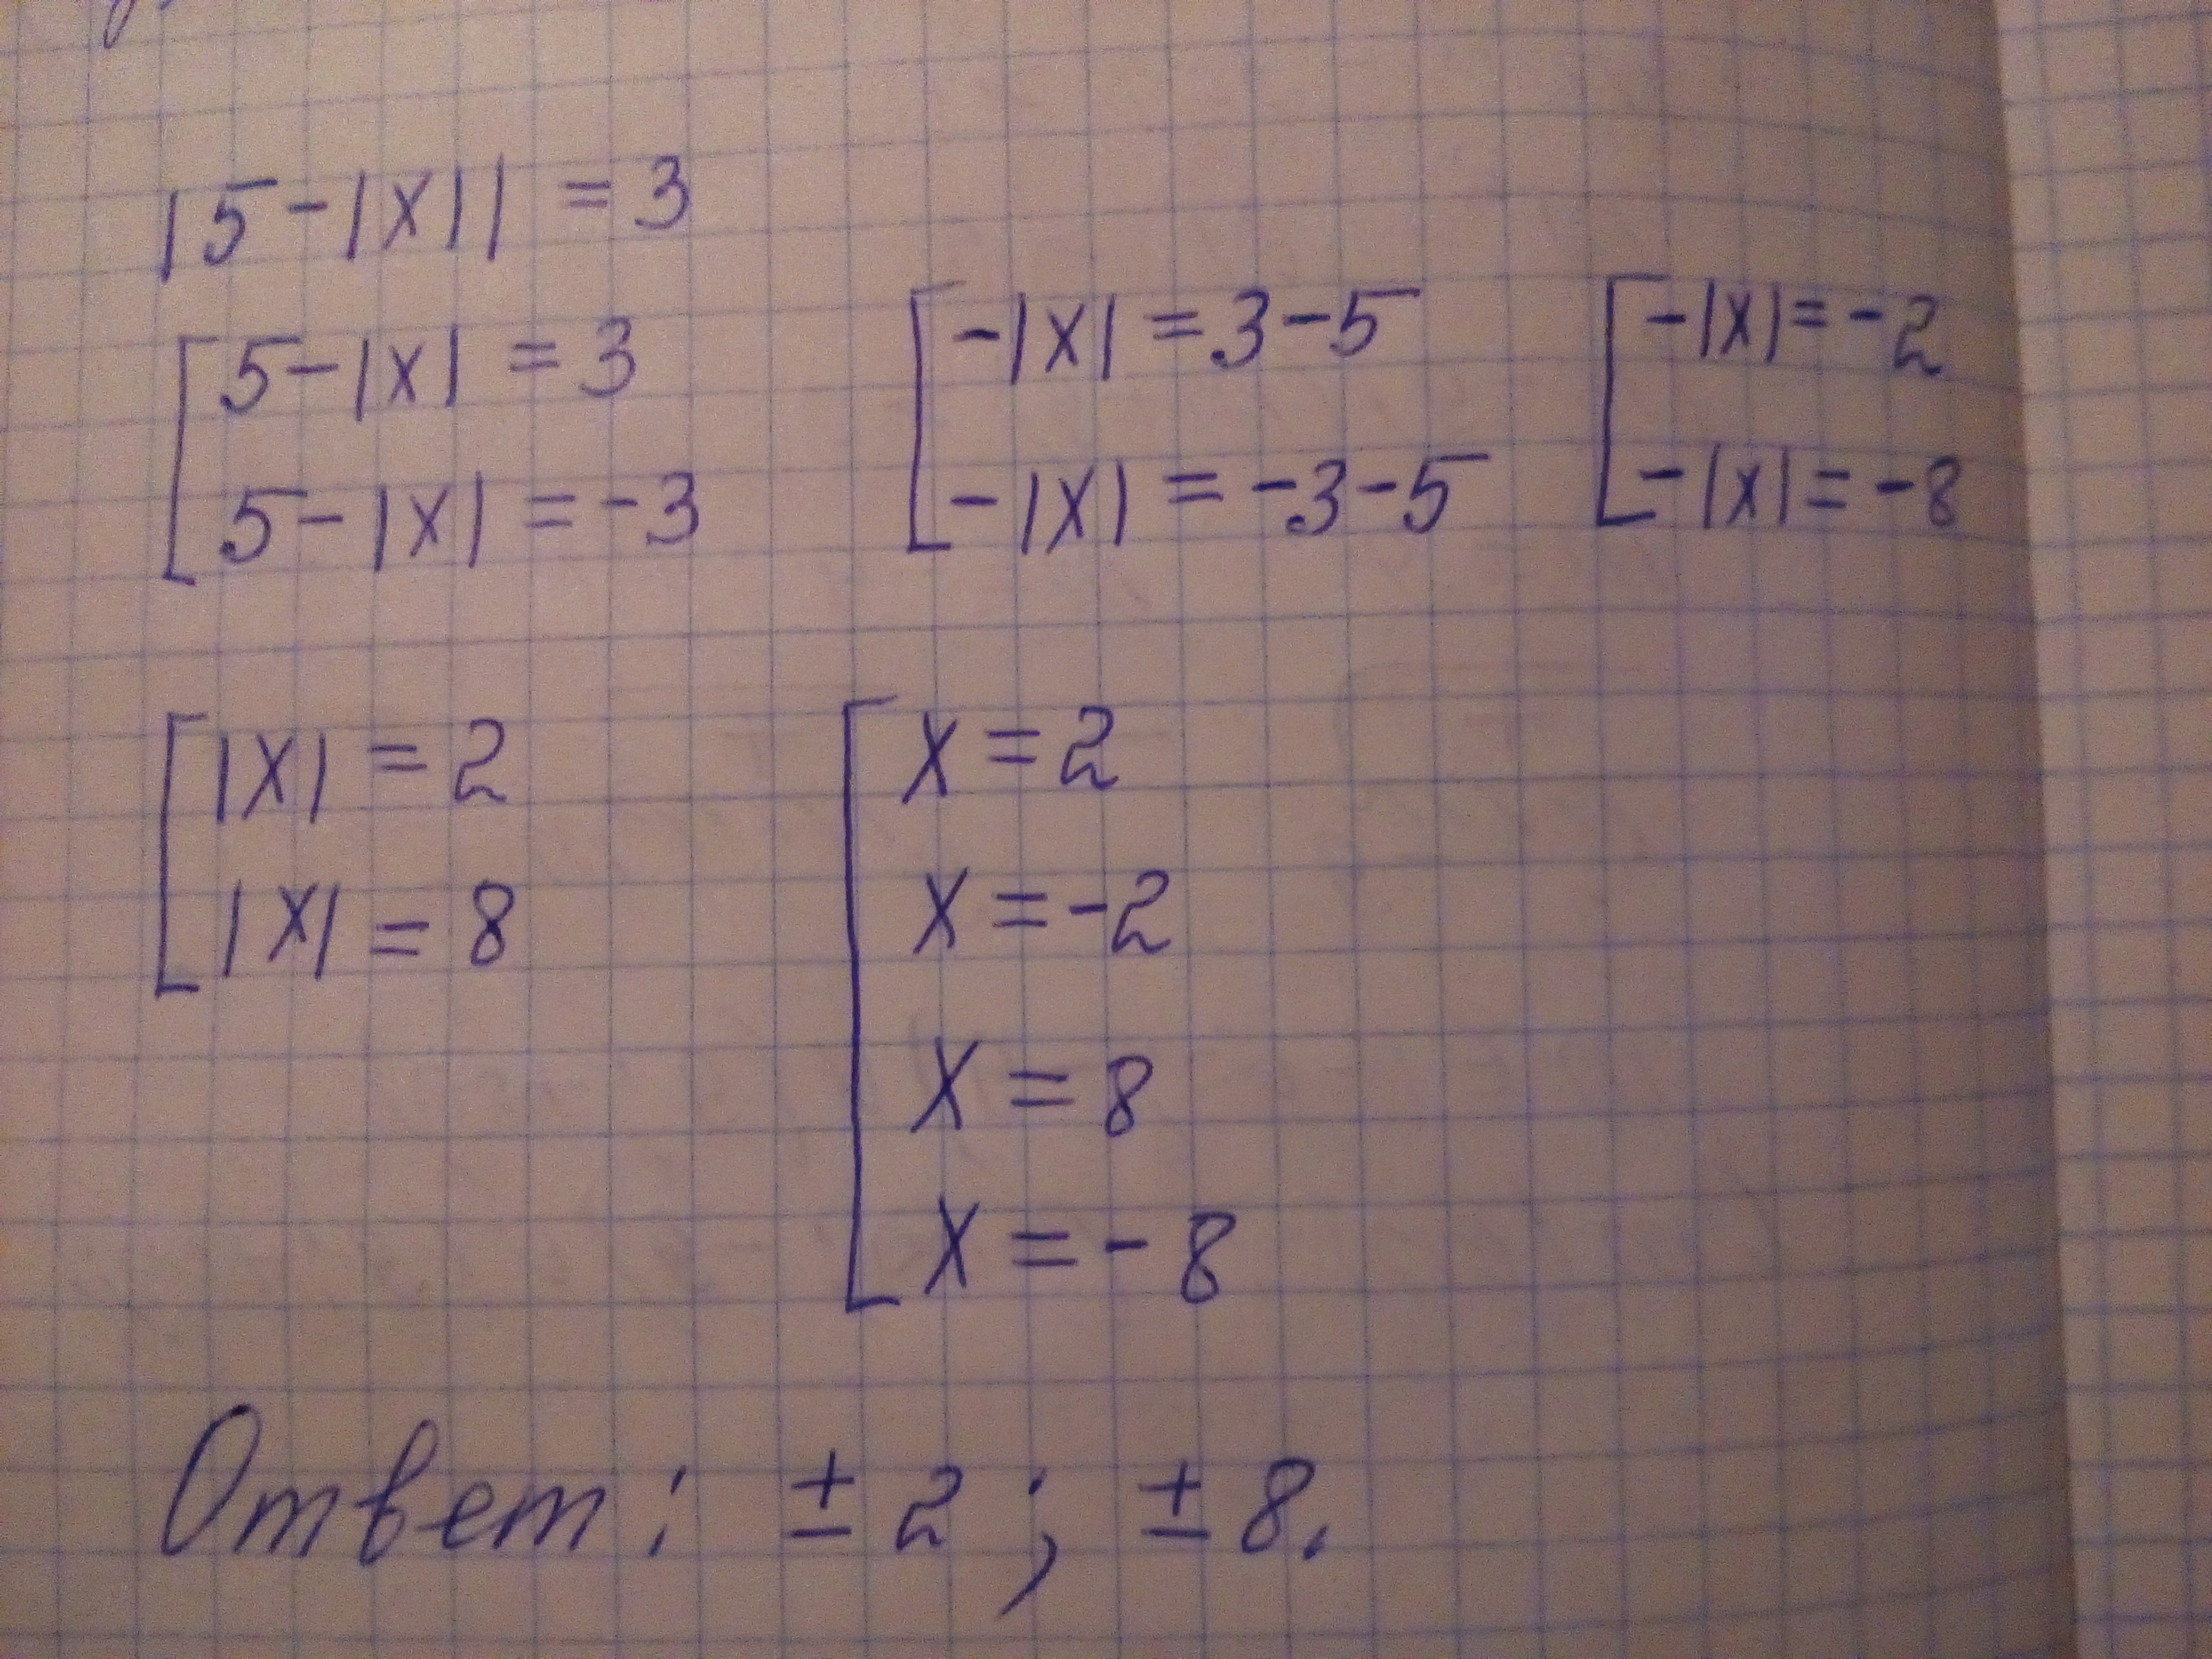 |5-|x|| = 3
[5-|x| = 3
[5-|x| = -3
[-|x| = 3-5
[-|x| = -3-5
[-|x| = -2
[-|x| = -8
[|x| = 2
[|x| = 8
[x = 2
x = -2
x = 8
x = -8
Ответ: ± 2 ; ± 8.